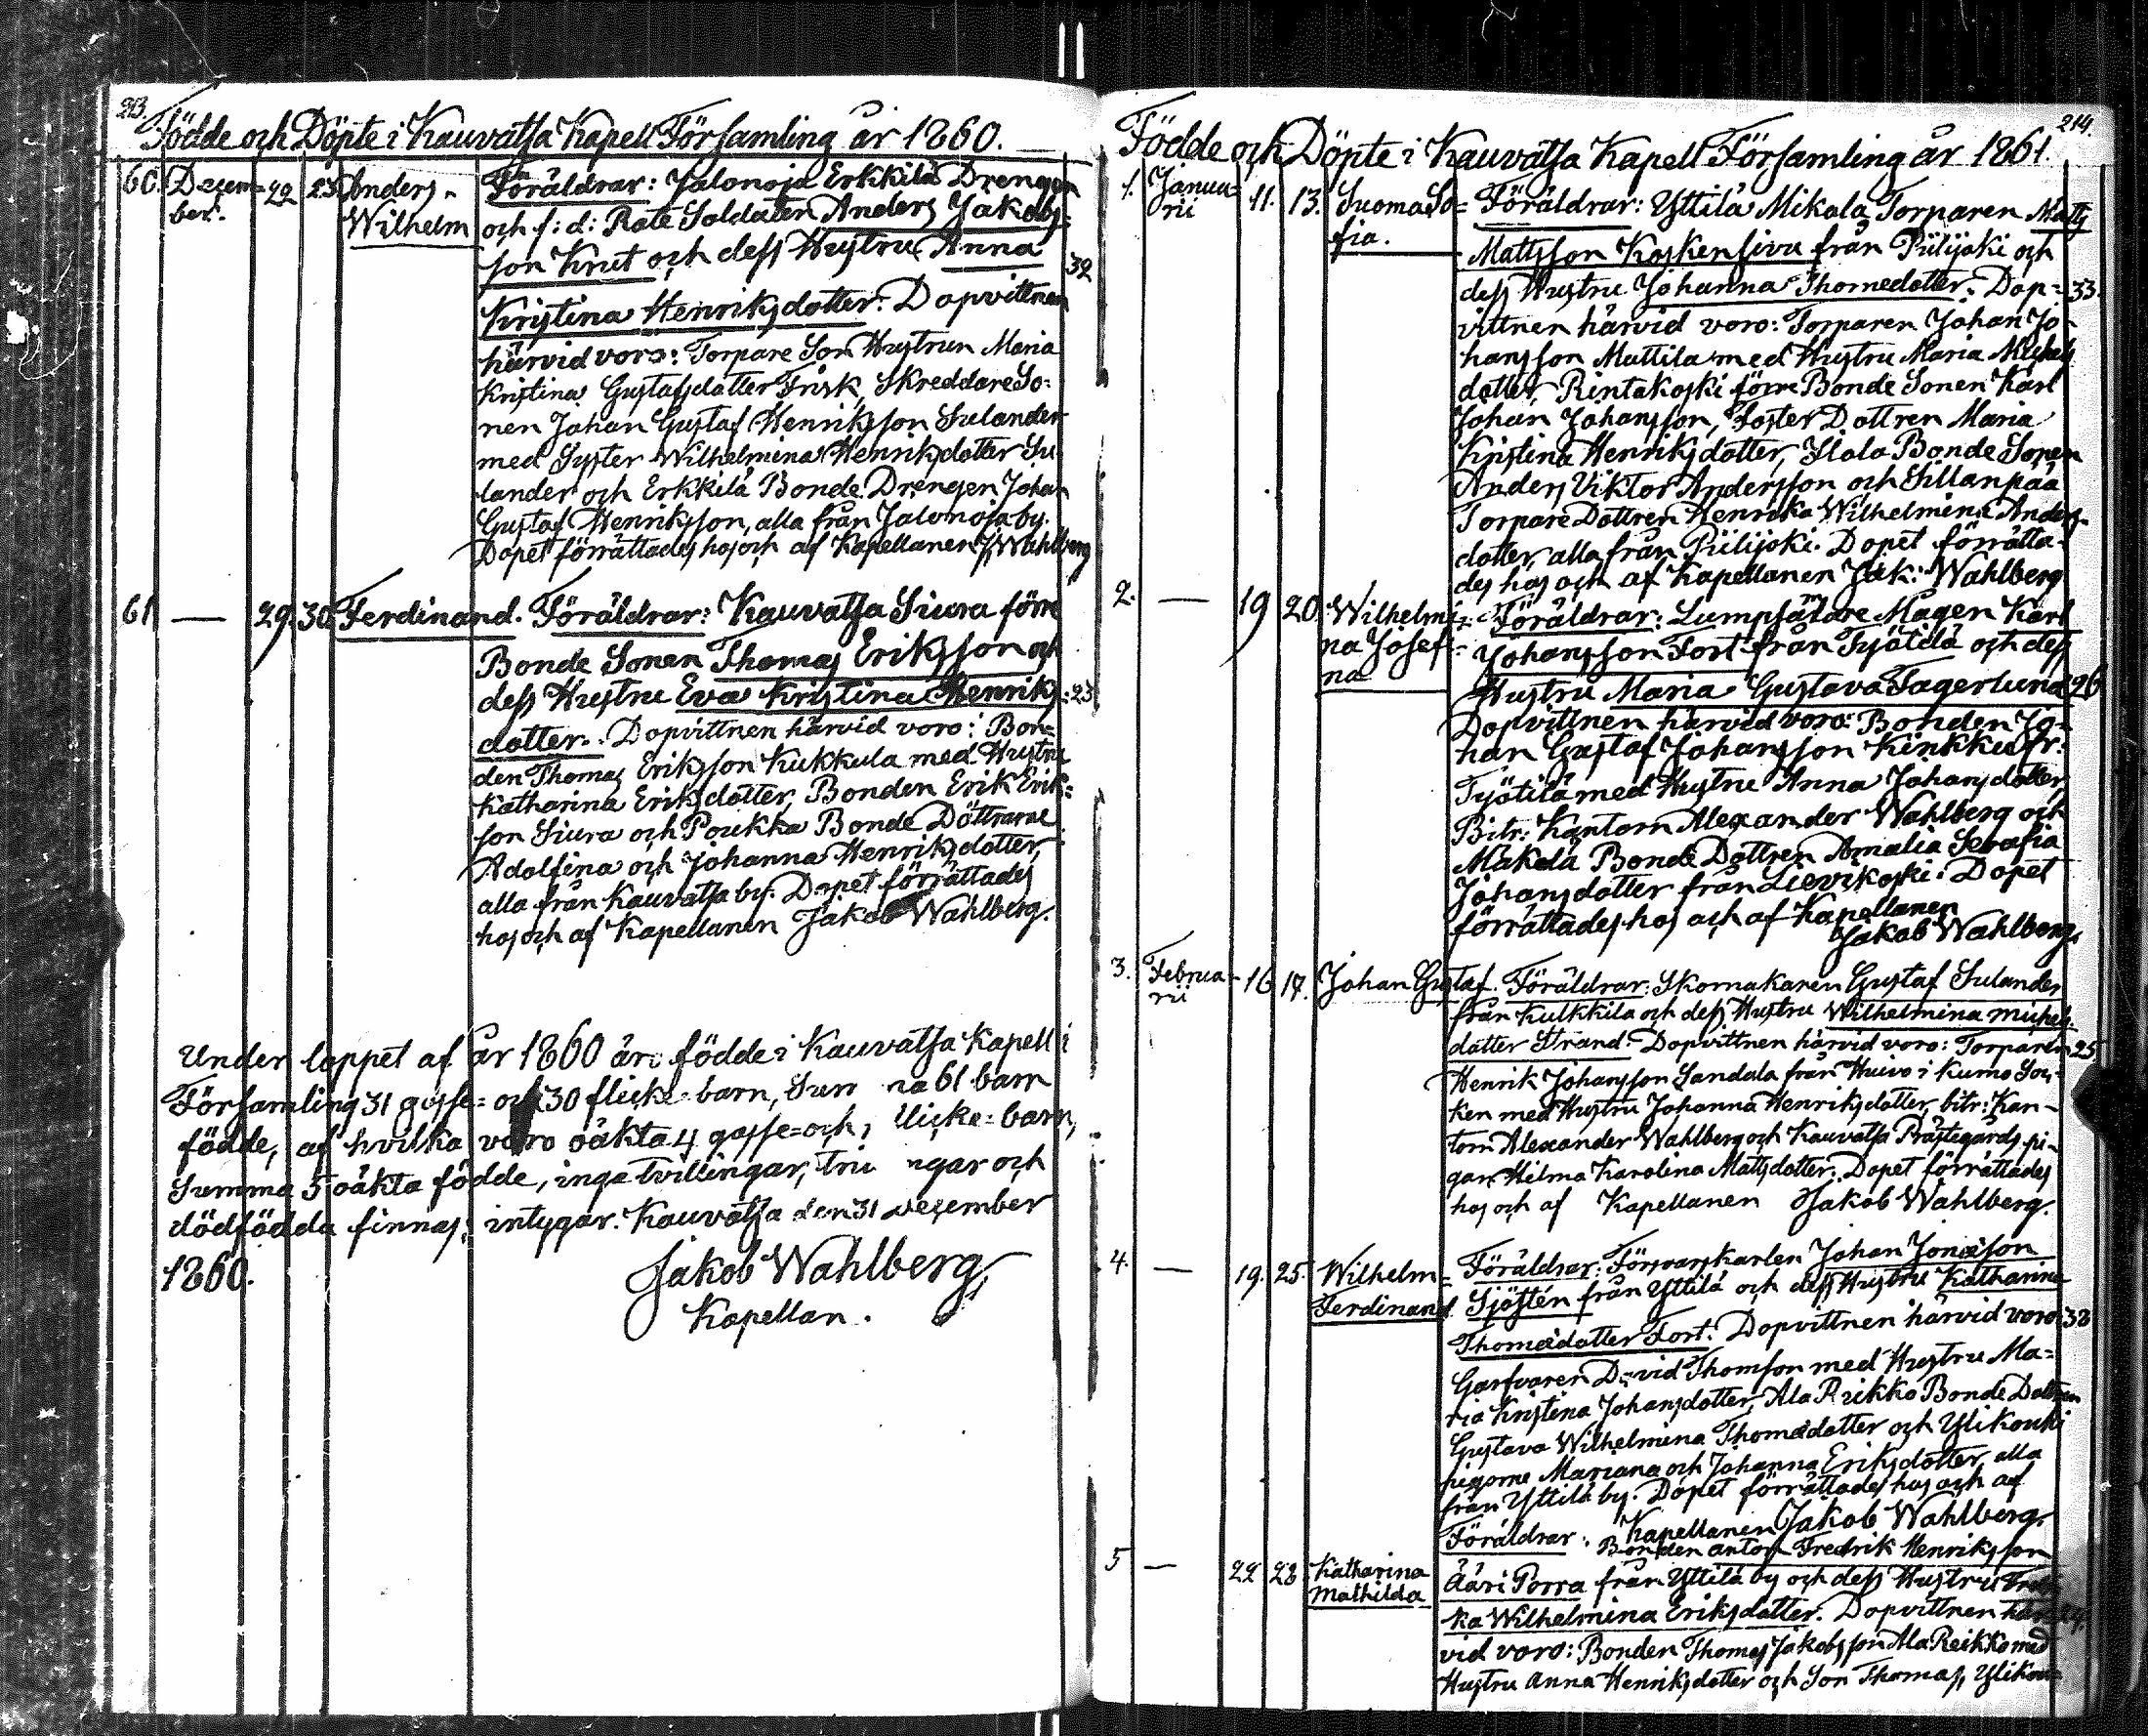 213.
Födde och Döpte i Kauvatsa Kapell Församling år 1860.
60. Decem= 22 23 Anders Föräldrar: Jalonoja Erkkilä Drengen
ber. Wilhelm och f: d: Rote Soldaten Anders Jakobs=
son Knut och dess Hustru Anna 32
Kristina Henriksdotter. Dopvittnen
härvid voro: Torpare Son Hustrun Maria
Kristina Gustafsdotter Frisk, Skreddare So=
nen Johan Gustaf Henriksson Sulander
med Syster Wilhelmina Henriksdotter Su
lander och Erkkilä Bonde Drengen Johan
Gustaf Henriksson, alla från Jalonoja by.
Dopet förrättades hos och af Kapellanen J. Wahlberg
61 — 29. 30. Ferdinand. Föräldrar: Kauvatsa Siura förre
Bonde Sonen Thomas Eriksson och
dess Hustru Eva Kristina Henriks= 23
dotter. Dopvittnen härvid voro: Bon=
den Thomas Eriksson Kukkula med Hustru
Katharina Eriksdotter, Bonden Erik Erik=
son Siura och Poukka Bonde Döttrarne
Adolfina och Johanna Henriksdotter,
alla från Kauvatsa by. Dopet förrättades
hos och af Kapellanen Jakob Wahlberg.
Under loppet af år 1860 äro födde i Kauvatsa Kapell
Församling 31 gosse= och 30 flicke barn, Sum na 61 barn
födde, af hvilka voro oäkta 4 gosse= och 1 licke= barn,
Summa 5 oäkta födde, inga tvillingar, tri ngar och
dödfödda finnas, intygar. Kauvatsa den 31 December
1860.
Jakob Wahlberg,
Kapellan.
214.
Födde och Döpte i Kauvatsa Kapell Församling år 1861.
1. Janua= 11. 13. Suoma So= Föräldrar: Yttilä Mikola Torparen Matts
rii fia. Mattsson Koskensivu från Piilijoki och
dess Hustru Johanna Thomedotter. Dop= 33.
vittnen härvid voro: Torparen Johan Jo-
hansson Mattila med Hustru Maria Michels
dotter, Rintakoski förre Bonde Sonen Karl
Johan Johansson, Foster Dottren Maria
Kristina Henriksdotter, Ilola Bonde Sonen
Anders Viktor Andersson och Sillanpää
Torpare Dottren Henrika Wilhelmina Anders-
dotter, alla från Piilijoki. Dopet förrätta=
des hos och af Kapellanen Jak: Wahlberg
2. — 19 20. Wilhelmi= Föräldrar: Lumpsätare Magen Karl
na Josefi= Johansson Fort från Työtilä och dess
na Hustru Maria Gustava Fagerlund 26
Dopvittnen härvid voro: Bonden Jo=
han Gustaf Johansson Kinkku fr:
Työtilä med Hustru Anna Johansdotter,
Bitr: Kantorn Alexander Wahlberg och
Mäkelä Bonde Dottren Amalia Serafia
Johansdotter från Lievikoski. Dopet
förrättades hos och af Kapellanen
Jakob Wahlberg.
3. Februa- 16 17. Johan Gustaf. Föräldrar: Skomakaren Gustaf Sulander
rii från Kulkkila och dess Hustru Wilhelmina Michels
dotter Strand. Dopvittnen härvid voro: Torparen 25
Henrik Johansson Sandala från Huivo i Kumo Soc=
ken med Hustru Johanna Henriksdotter, bitr: Kan-
torn Alexander Wahlberg och Kauvatsa Prästegårds pi-
gan Hilma Karolina Mattsdotter. Dopet förrättades
hos och af Kapellanen Jakob Wahlberg.
4. — 19. 25. Wilhelm= Föräldrar: Försvarskarlen Johan Jonasson
Ferdinand. Sjöstén från Yttilä och dess Hustru Katharina
Thomædotter Fort. Dopvittnen härvid voro 38
Garfvaren David Thomson med Hustru Ma=
ria Kristina Johansdotter, Ala Reikko Bonde Dottren
Gustava Wilhelmina Thomædotter och Ylikouki
pigorne Mariana och Johanna Eriksdotter, alla
från Yttilä by. Dopet förrättades hos och af
Kapellanen Jakob Wahlberg.
5 — 22 28 Katharina Föräldrar: Bonden Anton Fredrik Henriksson
Mathilda Ääri Porra från Yttilä by och dess Hustru Fredri
ka Wilhelmina Eriksdotter. Dopvittnen här
vid voro: Bonden Thomas Jakobsson Ala Reikko med
Hustru Anna Henriksdotter och Son Thomas, Ylikou=